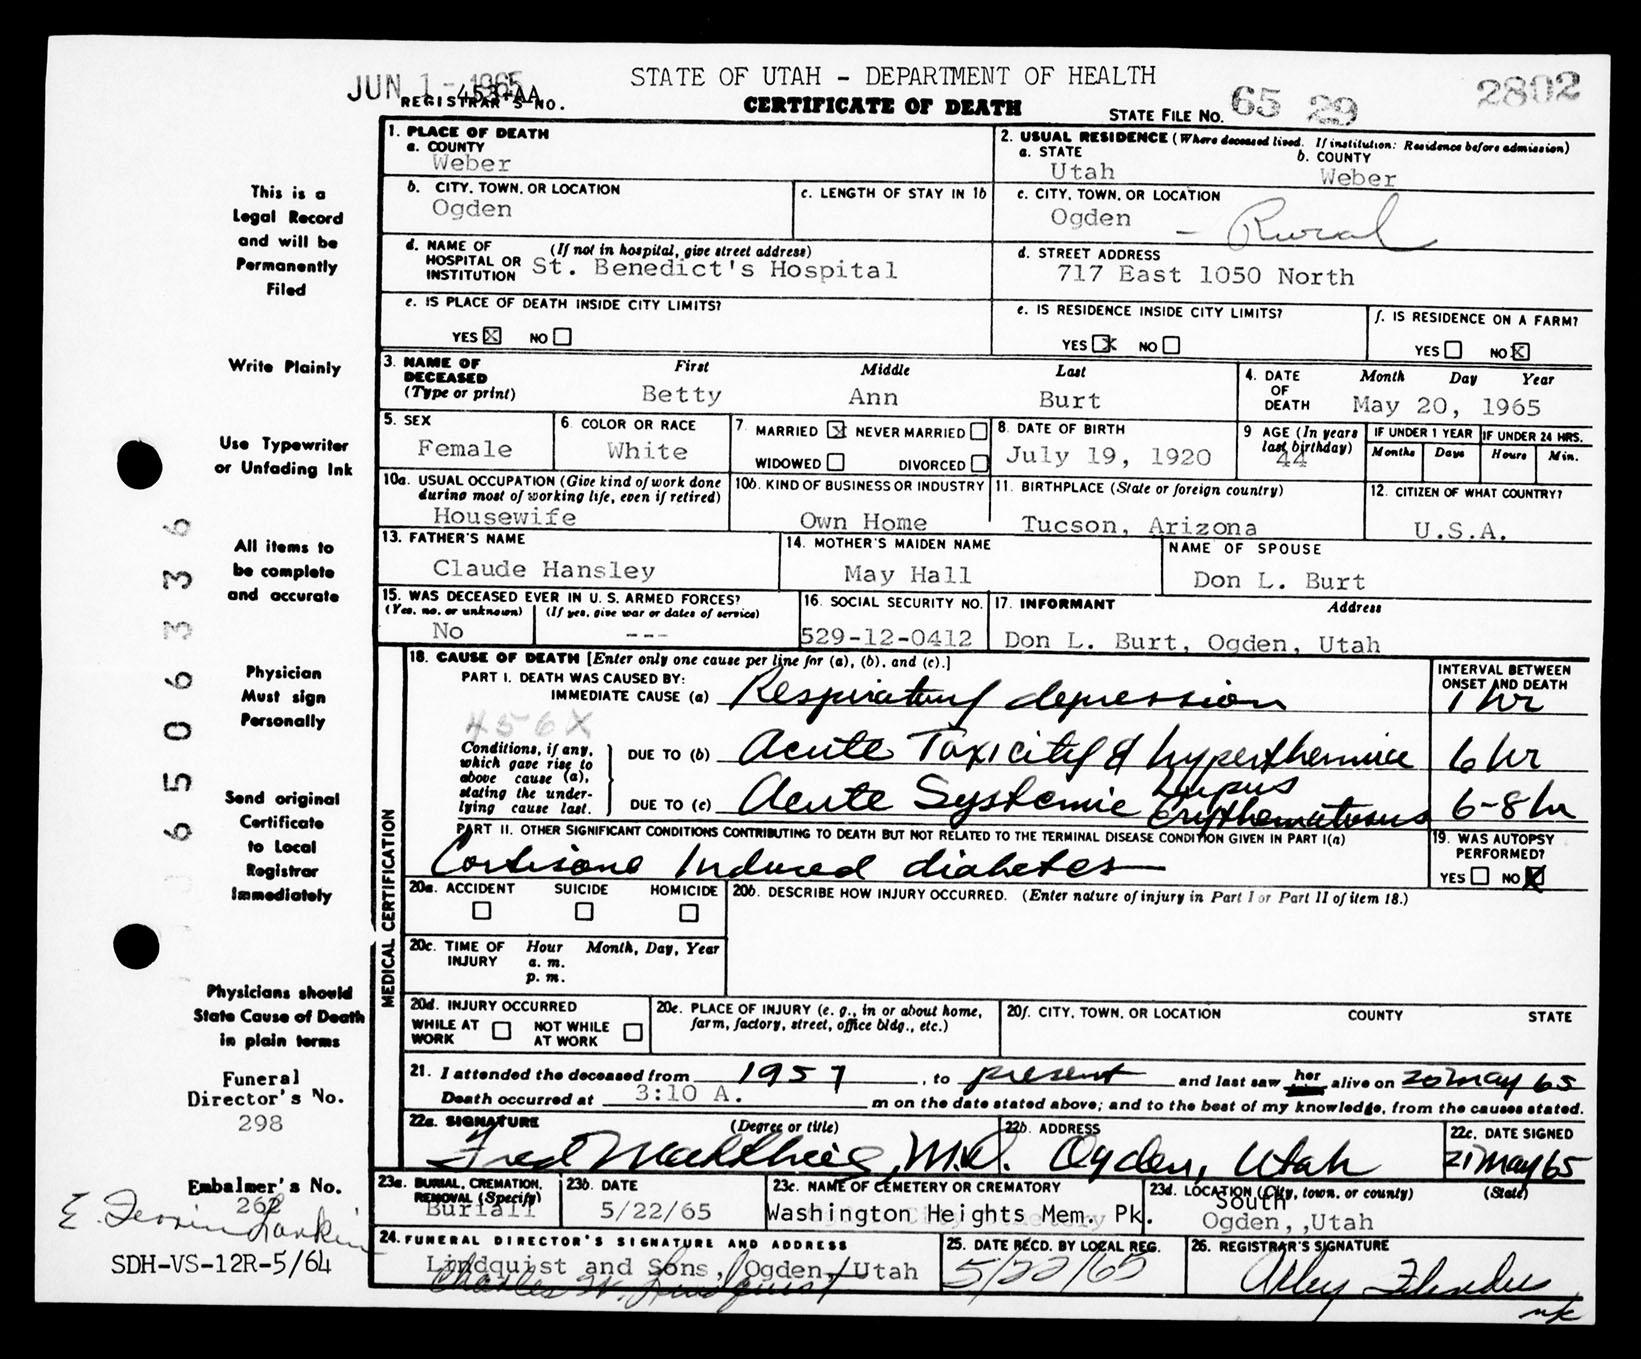 JUN 1 - 1965
453-AA
REGISTRAR'S NO.
STATE OF UTAH - DEPARTMENT OF HEALTH
CERTIFICATE OF DEATH
STATE FILE NO. 65 29
2802
This is a
Legal Record
and will be
Permanently
Filed
Write Plainly
Use Typewriter
or Unfading Ink
All items to
be complete
and accurate
Physician
Must sign
Personally
Send original
Certificate
to Local
Registrar
Immediately
Physicians should
State Cause of Death
in plain terms
Funeral
Director's No.
298
Embalmer's No.
262
E. Ferrin Larkin
SDH-VS-12R-5/64
65063336
1. PLACE OF DEATH
a. COUNTY
Weber
b. CITY, TOWN, OR LOCATION
Ogden
c. LENGTH OF STAY IN 1b
d. NAME OF HOSPITAL OR INSTITUTION (If not in hospital, give street address)
St. Benedict's Hospital
e. IS PLACE OF DEATH INSIDE CITY LIMITS?
YES X NO
2. USUAL RESIDENCE (Where deceased lived. If institution: Residence before admission)
a. STATE
Utah
b. COUNTY
Weber
c. CITY, TOWN, OR LOCATION
Ogden - Rural
d. STREET ADDRESS
717 East 1050 North
e. IS RESIDENCE INSIDE CITY LIMITS?
YES X NO
f. IS RESIDENCE ON A FARM?
YES NO X
3. NAME OF DECEASED (Type or print)
First Middle Last
Betty Ann Burt
4. DATE OF DEATH
Month Day Year
May 20, 1965
5. SEX
Female
6. COLOR OR RACE
White
7. MARRIED X NEVER MARRIED
WIDOWED DIVORCED
8. DATE OF BIRTH
July 19, 1920
9 AGE (In years last birthday)
44
IF UNDER 1 YEAR
Months Days
IF UNDER 24 HRS.
Hours Min.
10a. USUAL OCCUPATION (Give kind of work done during most of working life, even if retired)
Housewife
10b. KIND OF BUSINESS OR INDUSTRY
Own Home
11. BIRTHPLACE (State or foreign country)
Tucson, Arizona
12. CITIZEN OF WHAT COUNTRY?
U.S.A.
13. FATHER'S NAME
Claude Hansley
14. MOTHER'S MAIDEN NAME
May Hall
NAME OF SPOUSE
Don L. Burt
15. WAS DECEASED EVER IN U. S. ARMED FORCES?
(Yes, no, or unknown) (If yes, give war or dates of service)
No ---
16. SOCIAL SECURITY NO.
529-12-0412
17. INFORMANT Address
Don L. Burt, Ogden, Utah
MEDICAL CERTIFICATION
18. CAUSE OF DEATH [Enter only one cause per line for (a), (b), and (c).]
PART I. DEATH WAS CAUSED BY:
IMMEDIATE CAUSE (a) Respiratory depression
456X
Conditions, if any, which gave rise to above cause (a), stating the underlying cause last.
DUE TO (b) Acute Toxicity & hyperthermia
DUE TO (c) Acute Systemic Lupus Erythematosus
INTERVAL BETWEEN ONSET AND DEATH
1 hr
6 hr
6-8 hr
PART II. OTHER SIGNIFICANT CONDITIONS CONTRIBUTING TO DEATH BUT NOT RELATED TO THE TERMINAL DISEASE CONDITION GIVEN IN PART I(a)
Cortisone Induced diabetes
19. WAS AUTOPSY PERFORMED?
YES NO X
20a. ACCIDENT SUICIDE HOMICIDE
20b. DESCRIBE HOW INJURY OCCURRED. (Enter nature of injury in Part I or Part II of item 18.)
20c. TIME OF INJURY Hour Month, Day, Year
a. m.
p. m.
20d. INJURY OCCURRED
WHILE AT WORK NOT WHILE AT WORK
20e. PLACE OF INJURY (e. g., in or about home, farm, factory, street, office bldg., etc.)
20f. CITY, TOWN, OR LOCATION COUNTY STATE
21. I attended the deceased from 1957, to present and last saw her alive on 20 May 65
Death occurred at 3:10 A. m on the date stated above; and to the best of my knowledge, from the causes stated.
22a. SIGNATURE (Degree or title)
Fred M.D.
22b. ADDRESS
Ogden, Utah
22c. DATE SIGNED
21 May 65
23a. BURIAL, CREMATION, REMOVAL (Specify)
Buriall
23b. DATE
5/22/65
23c. NAME OF CEMETERY OR CREMATORY
Washington Heights Mem. Pk.
23d. LOCATION (City, town, or county) (State)
South
Ogden, ,Utah
24. FUNERAL DIRECTOR'S SIGNATURE AND ADDRESS
Lindquist and Sons, Ogden, Utah
Charles W. Lindquist
25. DATE RECD. BY LOCAL REG.
5/22/65
26. REGISTRAR'S SIGNATURE